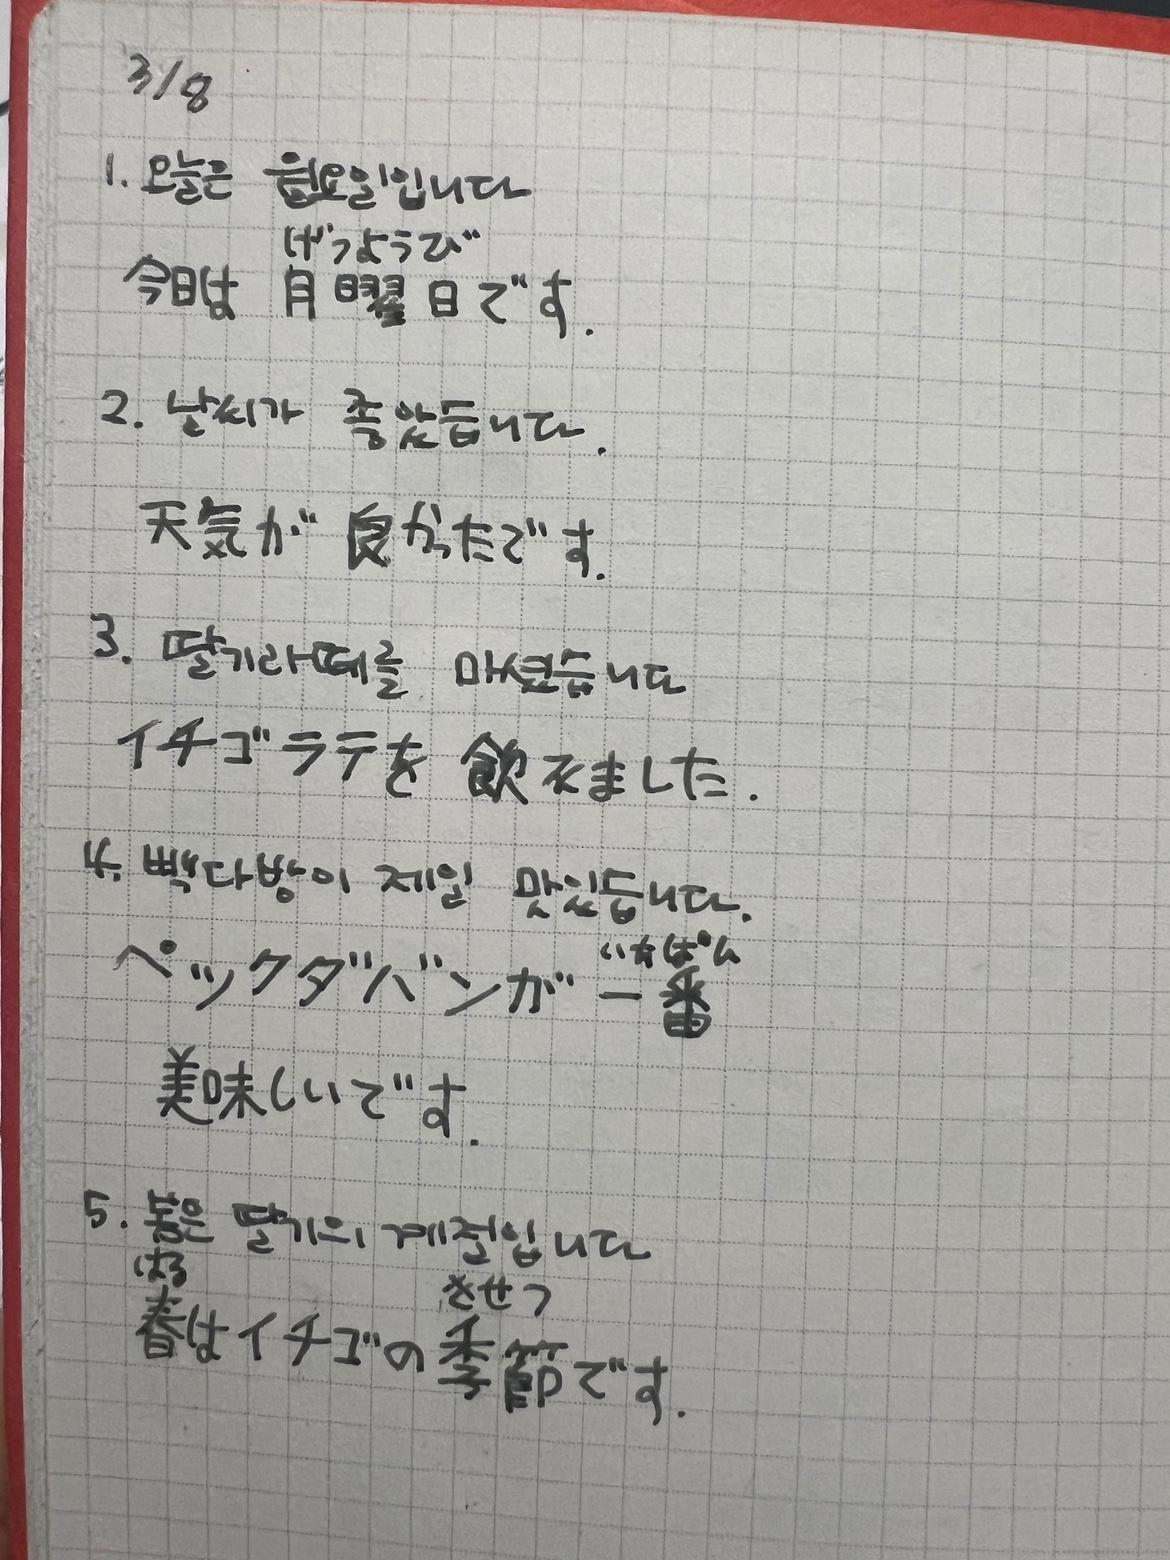 3/8
1. 오늘은 월요일입니다
げつようび
今日は 月曜日です.
2. 날씨가 좋았습니다.
天気が 良かったです.
3. 딸기라떼를 마셨습니다
イチゴラテを 飲みました.
4. 빽다방이 제일 맛있습니다.
いちばん
ペックダバンが 一番
美味しいです.
5. 봄은 딸기의 계절입니다
はる きせつ
春はイチゴの季節です.